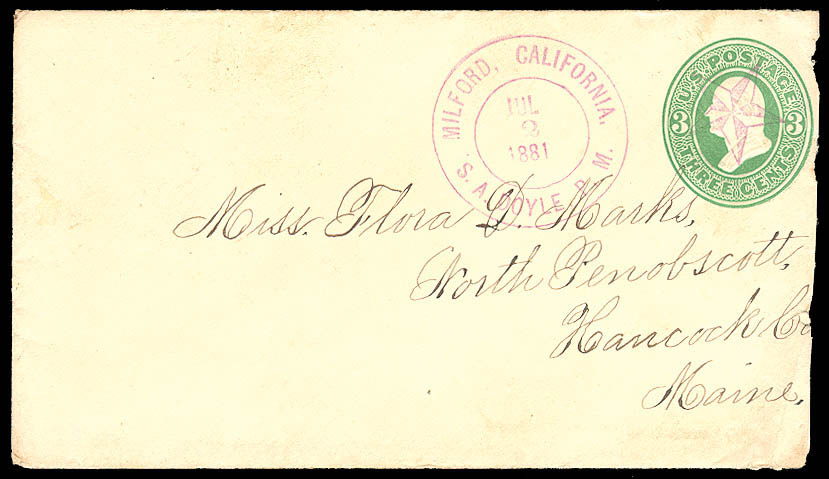 MILFORD, CALIFORNIA.
JUL
2
1881
S. A. DOYLE P. M.
U.S. POSTAGE
3 3
THREE CENTS
Miss. Flora D. Marks,
North Penobscott,
Hancock Co
Maine.